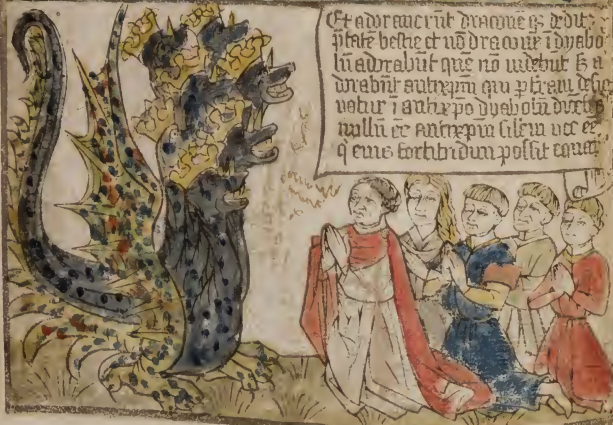 Et adorauerūt draconē q̄ dedit
ptātē bestie et nō draconē i dyabo
lū adorabūt quē nō uidebūt sꝫ a
dorabūt antexpm qui p
uatur ī antexpo dyabolū dicētes
nullū eē antexpm silem nec eē
q eius fortitudini possit equari